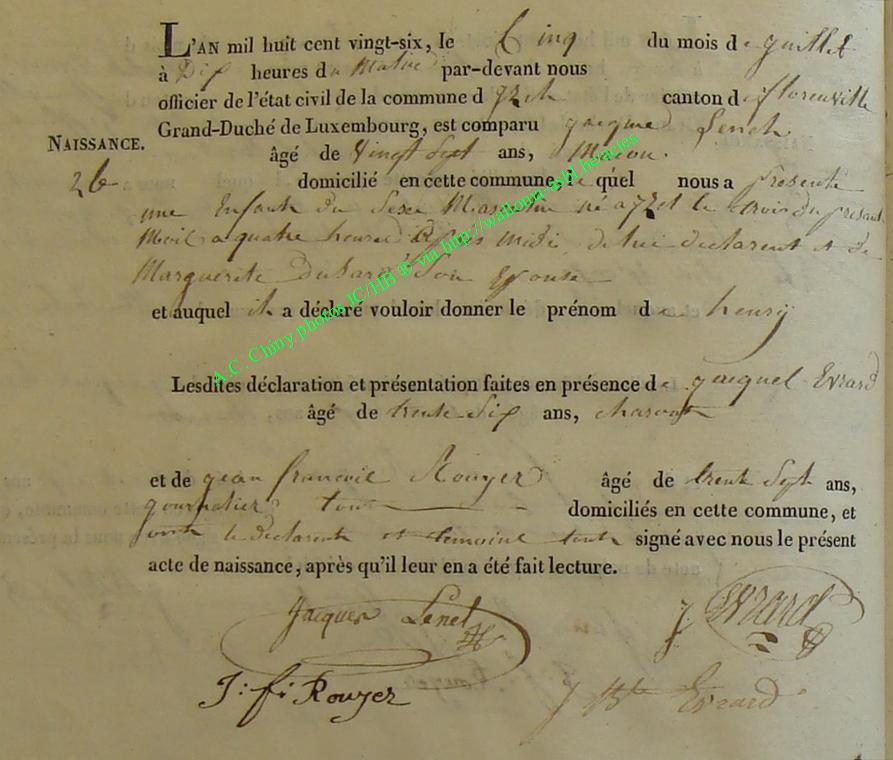 L'AN mil huit cent vingt-six, le Cinq du mois de guillet
à Dix heures du Matin par-devant nous
officier de l'état civil de la commune d'Izel canton de florenville
Grand-Duché de Luxembourg, est comparu gacque Lenel
NAISSANCE. âgé de Vingt Sept ans, Macon.
26 domicilié en cette commune, le quel nous a presenté
une Enfant du Sexe Masculin né a Izel le trois du present
Mois a quatre heures après midi, de lui declarent et de
Marguerite Son Epouse
et auquel il a déclaré vouloir donner le prénom de henry
Lesdites déclaration et présentation faites en présence de gacquel Evrard
âgé de trente-Six ans, charon
et de gean francoil Rouyer âgé de trente Sept ans,
gournalier tout domiciliés en cette commune, et
le declarent et temoint tout signé avec nous le présent
acte de naissance, après qu'il leur en a été fait lecture.
Jacques Lenel J. EVRARD
J: f: Rouyer J Bte Evrard
A.C. Chiny photos IC/HB ® via http://wallonia-asbl.heracles